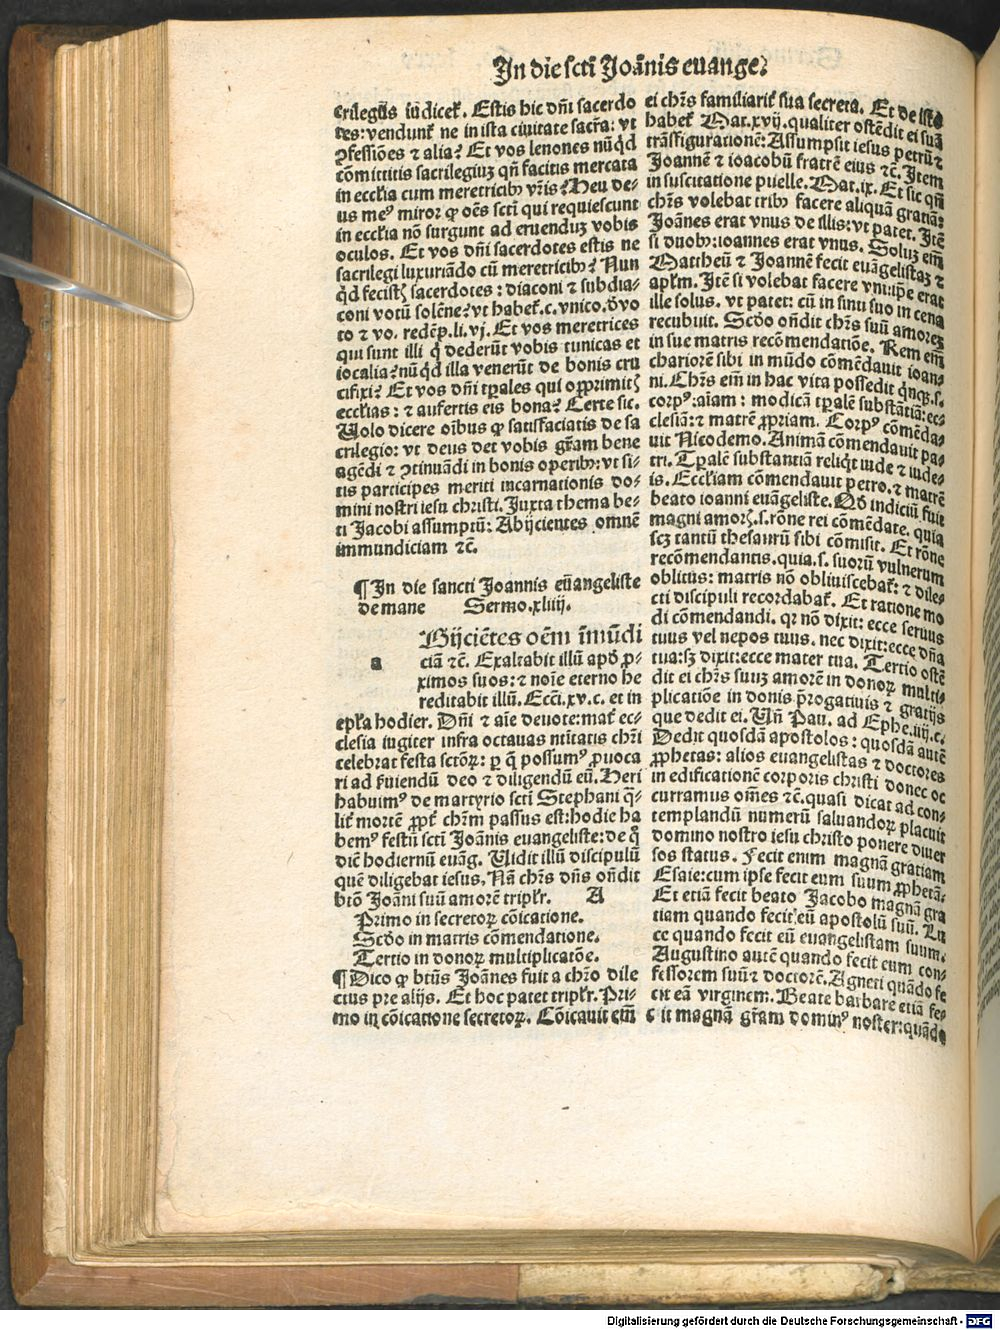 In die scti Joānis euange.
crilegiis iudicet̄. Estis hic dn̄i sacerdo
tes: vendunt̄ ne in ista ciuitate sacr̄a: vt
ↄfessiōes ⁊ alia? Et vos lenones nūq̇d
cōmittitis sacrilegiuꝫ qn̄ facitis mercata
in ecclīa cum meretricibꝰ vr̄is? Heu de-
us meꝰ miror ꝙ oēs scti qui requiescunt
in ecclīa nō surgunt ad eruenduꝫ vobis
oculos. Et vos dn̄i sacerdotes estis ne
sacrilegi luxuriādo cū meretricibꝰ? Nun
q̇d fecistꝭ sacerdotes: diaconi ⁊ subdia-
coni votū solēne? vt habet̄.c.vnico.de vo
to ⁊ vo. redēp̄.li.vj. Et vos meretrices
qui sunt illi q̇ dederūt vobis tunicas et
iocalia? nūq̇d illa venerūt de bonis cru
cifixi? Et vos dn̄i tp̄ales qui opprimitꝭ
ecclīas: ⁊ aufertis eis bona? Certe sic.
Uolo dicere oībus ꝙ satisfaciatis de sa
crilegio: vt deus det vobis gr̄am bene
agēdi ⁊ ↄtinuādi in bonis operibꝰ: vt si-
tis participes meriti incarnationis do-
mini nostri iesu christi. Juxta thema be-
ti Jacobi assumptū: Abijcientes omnē
immundiciam ⁊c̄.
¶ In die sancti Joannis eūangeliste
de mane Sermo.xliiij.
a Bijciētes oēm īmūdi
ciā ⁊c̄. Exaltabit illū apd̄ ꝓ-
ximos suos: ⁊ noīe eterno he
reditabit illū. Ecci.xv.c. et in
epl̄a hodier. Dn̄i ⁊ aīe deuote: mat̄ ec-
clesia iugiter infra octauas nītatis chr̄i
celebrat festa sctōꝝ: ꝑ q̄ possumꝰ ꝓuoca
ri ad ẜuiendū deo ⁊ diligendū eū. Heri
habuimꝰ de martyrio scti Stephani q̄-
lit̄ mortē ꝓpt̄ chr̄m passus est: hodie ha
bemꝰ festū scti Joānis euangeliste: de q̇
diē hodiernū euāg. Uidit illū discipulū
quē diligebat iesus. Nā chr̄s dn̄s on̄dit
btō Joāni suū amorē triplr̄. A
Primo in secretoꝝ cōicatione.
Scdo in matris cōmendatione.
Tertio in donoꝝ multiplicatōe.
¶ Dico ꝙ btūs Joānes fuit a chr̄o dile
ctus pre alijs. Et hoc patet triplr̄. Pri-
mo in cōicatione secretoꝝ. Cōicauit em̄
ei chr̄s familiarit̄ sua secreta. Et de isto
habet̄ Mat.xvij. qualiter ostēdit ei suā
trāsfigurationē: Assumpsit iesus petrū ⁊
Joannē ⁊ iacobū fratrē eius ⁊c̄. Item
in suscitatione puelle. Mat.ix. Et sic qn̄
chr̄s volebat tribꝰ facere aliquā gratiā:
Joānes erat vnus de illis: vt patet. Itē
si duobꝰ: ioannes erat vnus. Soluꝫ em̄
Mattheū ⁊ Joannē fecit euāgelistaꝫ ⁊
apl̄m. Itē si volebat facere vni: ip̄e erat
ille solus. vt patet: cū in sinu suo in cena
recubuit. Scdo on̄dit chr̄s suū amoreꝫ
in sue matris recōmendatiōe. Rem em̄
chariorē sibi in mūdo cōmēdauit ioan-
ni. Chr̄s em̄ in hac vita possedit q̇nqꝫ.s.
corpꝰ: aīam: modicā tp̄alē substātiā: ec-
clesiā: ⁊ matrē ꝓpriam. Corpꝰ cōmēda-
uit Nicodemo. Animā cōmendauit pa-
tri. Tp̄alē substantiā reliq̇t iude ⁊ iude-
is. Eccliam cōmendauit petro. ⁊ matrē
beato ioanni euāgeliste. Qd̄ indiciū fuit
magni amorꝭ.s. rōne rei cōmēdate. quia
scꝫ tantū thesaurū sibi cōmisit. Et rōne
recōmendantis. quia.s. suorū vulnerum
oblitus: matris nō obliuiscebat̄: ⁊ dile-
cti discipuli recordabat̄. Et ratione mo
di cōmendandi. qꝛ nō dixit: ecce seruus
tuus vel nepos tuus. nec dixit: ecce dn̄a
tua: sꝫ dixit: ecce mater tua. Tertio ostē
dit ei chr̄s suuꝫ amorē in donoꝝ multi-
plicatiōe in donis p̄rogatiuis ⁊ gratijs
que dedit ei. Un̄ Pau. ad Ephe.iiij.c.
Dedit quosdā apostolos: quosdā autē
ꝓphetas: alios euangelistas ⁊ doctores
in edificationē corporis christi donec oc
curramus om̄es ⁊c̄. quasi dicat ad con-
templandū numerū saluandoꝝ placuit
domino nostro iesu christo ponere diuer
sos status. Fecit enim magnā gratiam
Esaie: cum ipse fecit eum suum ꝓphetā.
Et etiā fecit beato Jacobo magnā gra
tiam quando fecit eū apostolū suū. Lu
ce quando fecit eū euangelistam suum.
Augustino autē quando fecit eum con-
fessorem suū ⁊ doctorē. Agneti quādo fe
cit eā virginem. Beate barbare etiā fe-
cit magnā gr̄am dominꝰ noster: quādo
Digitalisierung gefördert durch die Deutsche Forschungsgemeinschaft - DFG